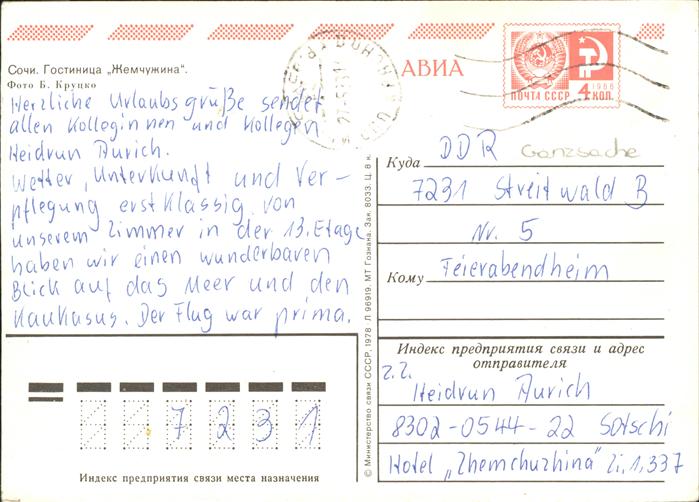 АВИА
ПОЧТА СССР
4 КОП.
1966
Сочи. Гостиница „Жемчужина“.
Фото Б. Круцко
Herzliche Urlaubsgrüße sendet
allen Kolleginnen und Kollegen
Heidrun Aurich.
Wetter, Unterkunft und Ver-
pflegung erstklassig, von
unserem Zimmer in der 13. Etage
haben wir einen wunderbaren
Blick auf das Meer und den
Kaukasus. Der Flug war prima.
Куда DDR
Ganzsache
7231 Streitwald B
Nr. 5
Кому Feierabendheim
Индекс предприятия связи и адрес
отправителя
z.Z.
Heidrun Aurich
8302-0544-22 Sotschi
Hotel „Zhemchuzhina" Zi, 1, 337
7231
Индекс предприятия связи места назначения
© Министерство связи СССР, 1978 Л 96919. МТ Гознака. Зак. 8033. Ц. 8 к.